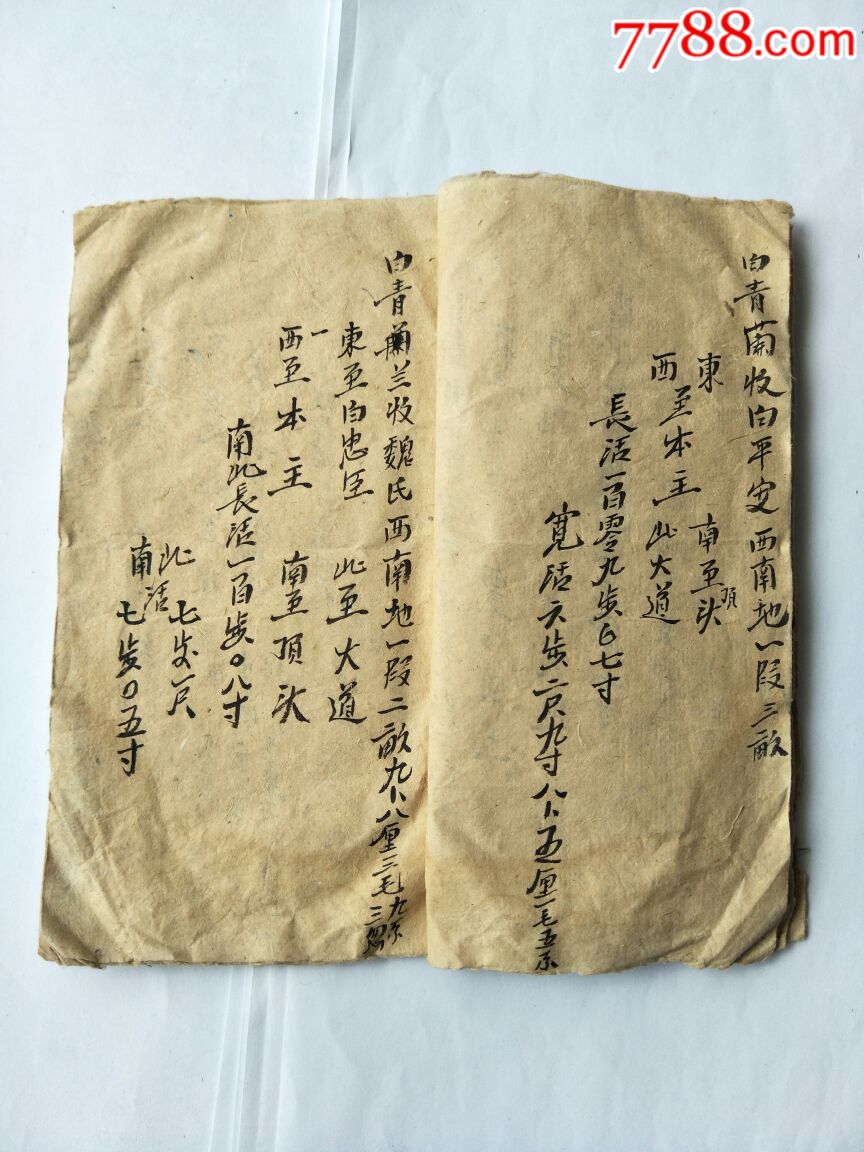 7788.com
白青蘭收白平安西南地一段三畝
東 南至頂头
西至本主 北大道
長活一百零九步〇七寸
寬活六步二尺九寸八卜五厘一毛五糸
白青蘭兰收魏氏西南地一段二畝九卜八厘三毛九糸三忽
東至白忠臣 北至大道
一
西至本主 南至頂头
南北長活一百步〇八寸
北活七步一尺
南 七步〇五寸